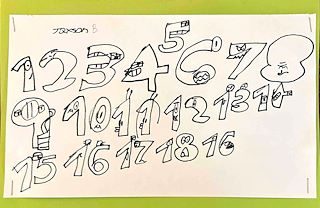 1 2 3 4 5 6 7 8
9 10 11 12 13 14
15 16 17 18